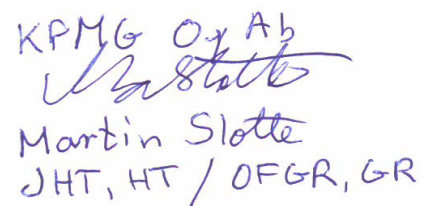 KPMG Oy Ab
Martin Slotte
JHT, HT / OFGR, GR